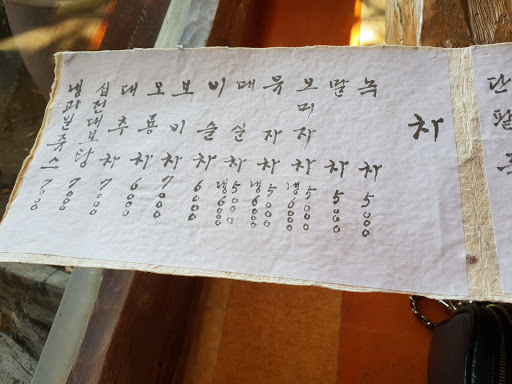 단팥
차
녹차 5000
말차 5000
오미자차 5000 냉6000
유자차 5000 냉6000
매실차 5000 냉6000
이슬차 6000
보이차 7000
오룡차 6000
대추차 7000
십전대보탕 7000
냉과일쥬스 7000